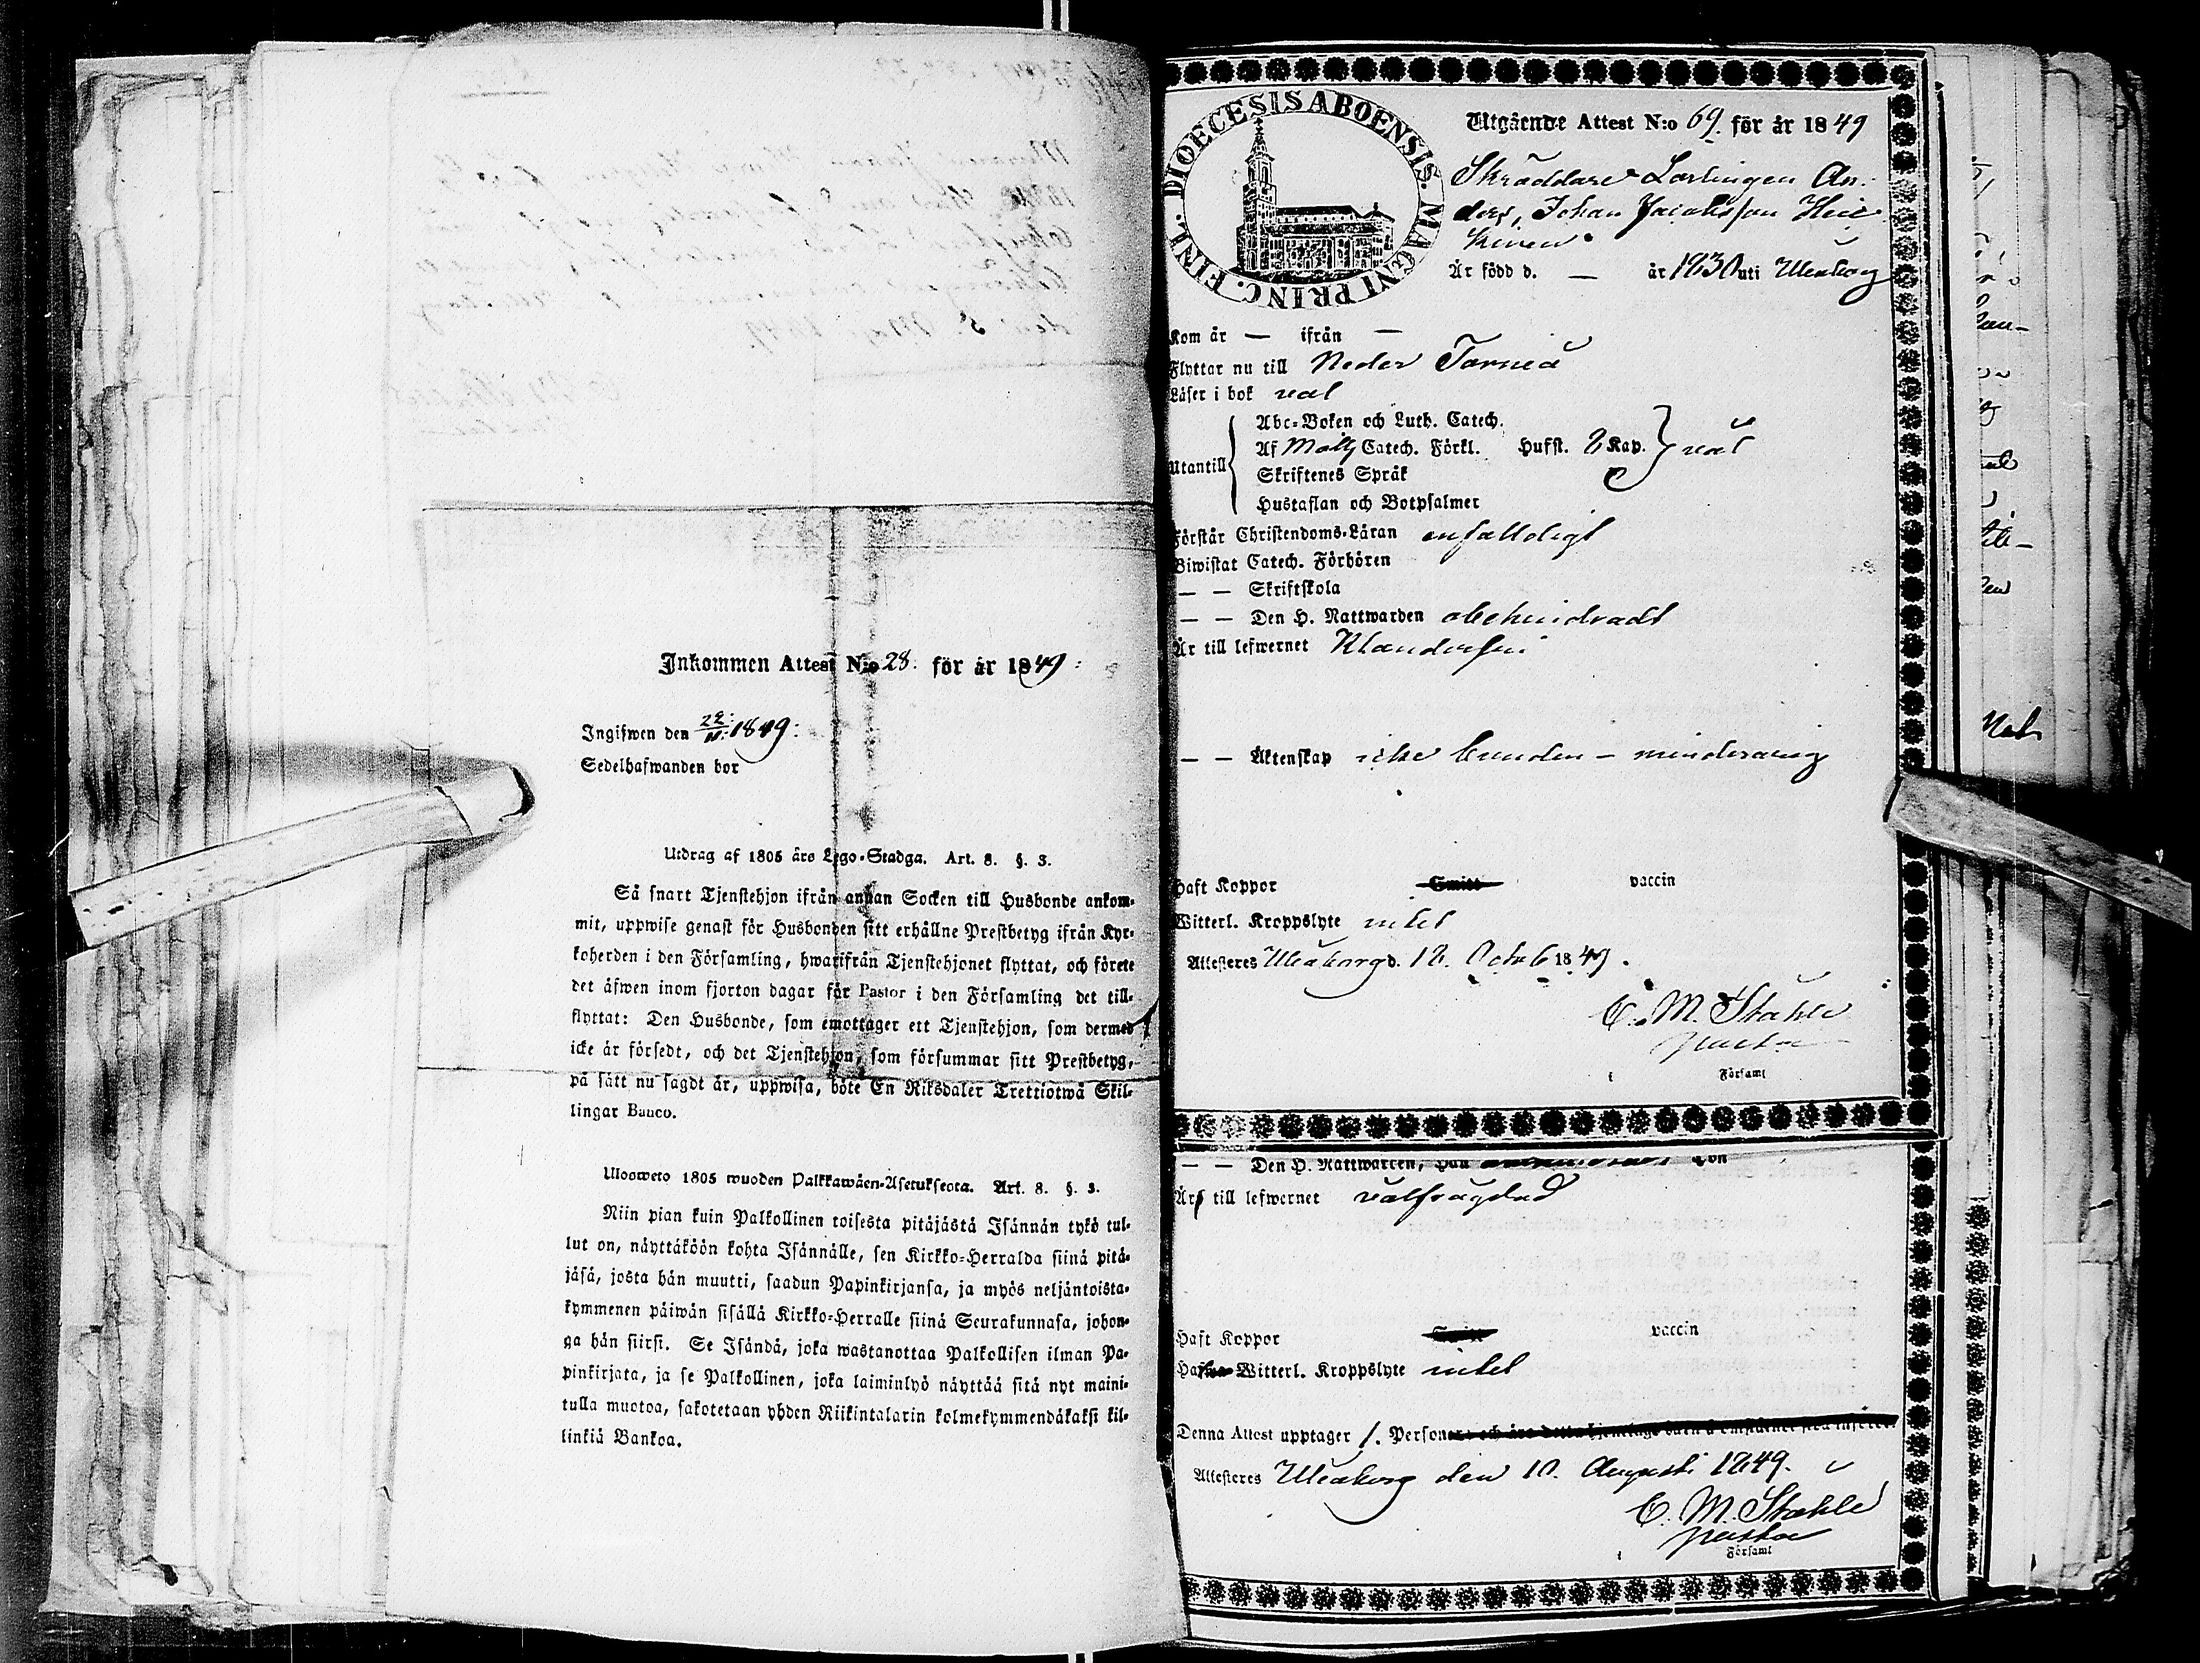 Inkommen Attest N:o 28. för år 1849.
Ingifwen den 22/11. 1849.
Sedelhafwanden bor
Utdrag af 1805 års Lego-Stadga. Art. 8. §. 3.
Så snart Tjenstehjon ifrån annan Socken till Husbonde ankom-
mit, uppwise genast för Husbonden sitt erhållne Prestbetyg ifrån Kyr-
koherden i den Församling, hwarifrån Tjenstehjonet flyttat, och förete
det äfwen inom fjorton dagar för Pastor i den Församling det till-
flyttat: Den Husbonde, som emottager ett Tjenstehjon, som dermed
icke är försedt, och det Tjenstehjon, som försummar sitt Prestbetyg,
på sätt nu sagdt är, uppwisa, böte En Riksdaler Trettiotwå Skil-
lingar Banco.
Ulosweto 1805 wuoden Palkkawäen-Asetuksesta. Art. 8. §. 3.
Niin pian kuin Palkollinen toisesta pitäjästä Isännän tykö tul-
lut on, näyttäköön kohta Isännälle, sen Kirkko-Herralda siinä pitä-
jäsä, josta hän muutti, saadun Papinkirjansa, ja myös neljäntoista-
kymmenen päiwän sisällä Kirkko-Herralle siinä Seurakunnasa, johon-
ga hän siirsi. Se Isändä, joka wastanottaa Palkollisen ilman Pa-
pinkirjata, ja se Palkollinen, joka laiminlyö näyttää sitä nyt maini-
tulla muotoa, sakotetaan yhden Riikintalarin kolmekymmendäkaksi kil-
linkiä Bankoa.
DIOECESIS ABOENSIS. MAGNI PRINC. FINL.
Utgående Attest N:o 69. för år 1849
Skräddare Lärlingen An-
ders, Johan Jacobsson Heic
kinen
Är född d. — år 1830 uti Uleåborg
Kom år — ifrån —
Flyttar nu till Neder Torneå
Läser i bok väl
Abc-Boken och Luth. Catech.
Utantill Af Catech. Förkl. Hufst. 2 Kap. väl
Skriftenes Språk
Hustaflan och Botpsalmer
Förstår Christendoms-Läran enfalldigt
Biwistat Catech. Förhören
— — Skriftskola
— — Den H. Nattwarden obehindradt
Är till lefwernet Klanderfri
— — Äktenskap icke bunden – minderårig
Haft Koppor Smitt vaccin
Witterl. Kroppslyte intet
Attesteres Uleåborg d. 12. Octob 1849.
C. M. Stahle
Pastor
Församl
— — Den H. Nattwarden, han hon
Är till lefwernet välfrägdad
Haft Koppor Smitt vaccin
Witterl. Kroppslyte intet
Denna Attest upptager 1. Person
Attesteres Uleåborg den 10. Augusti 1849.
C. M. Stahle
Pastor
Församl